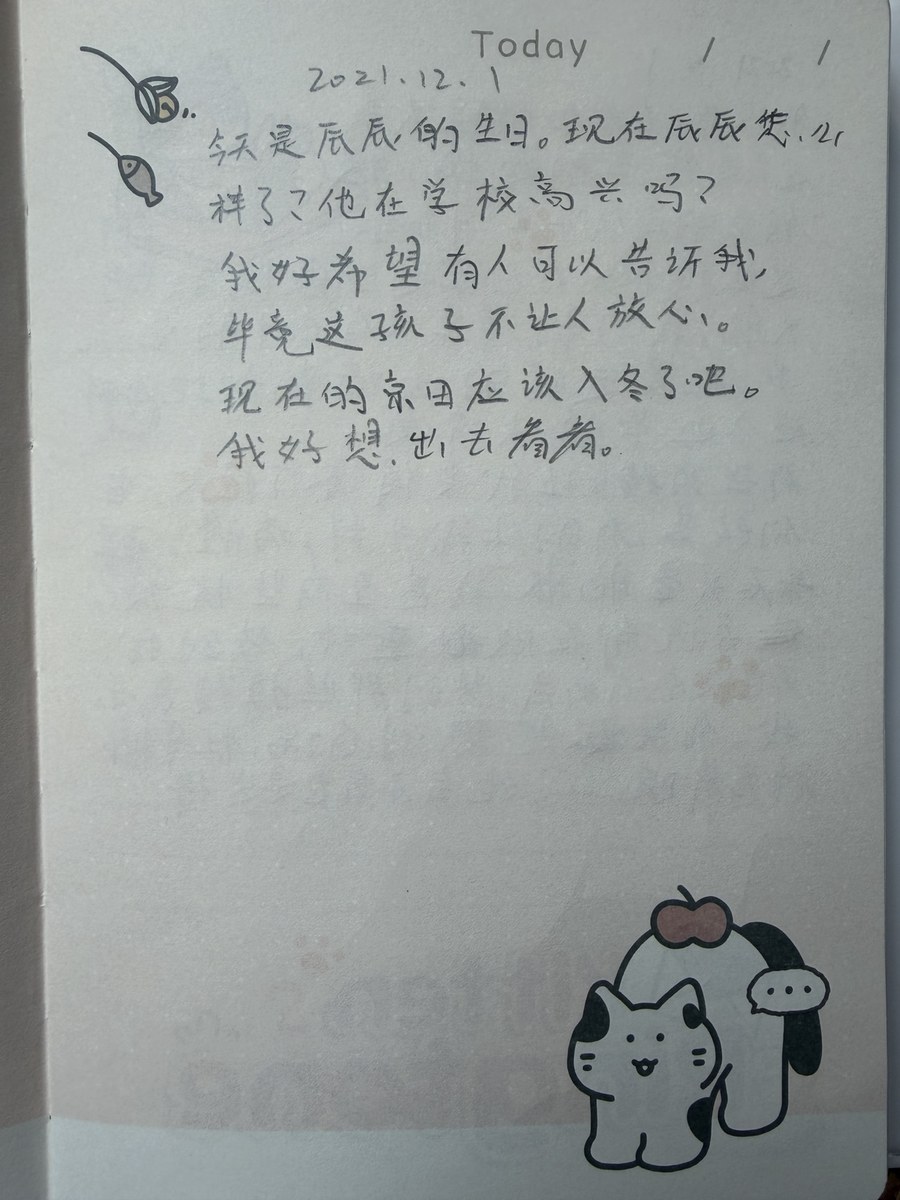 Today / /
2021.12.1
今天是辰辰的生日。现在辰辰怎么
样了？他在学校高兴吗？
我好希望有人可以告诉我，
毕竟这孩子不让人放心。
现在的京田应该入冬了吧。
我好想出去看看。
...